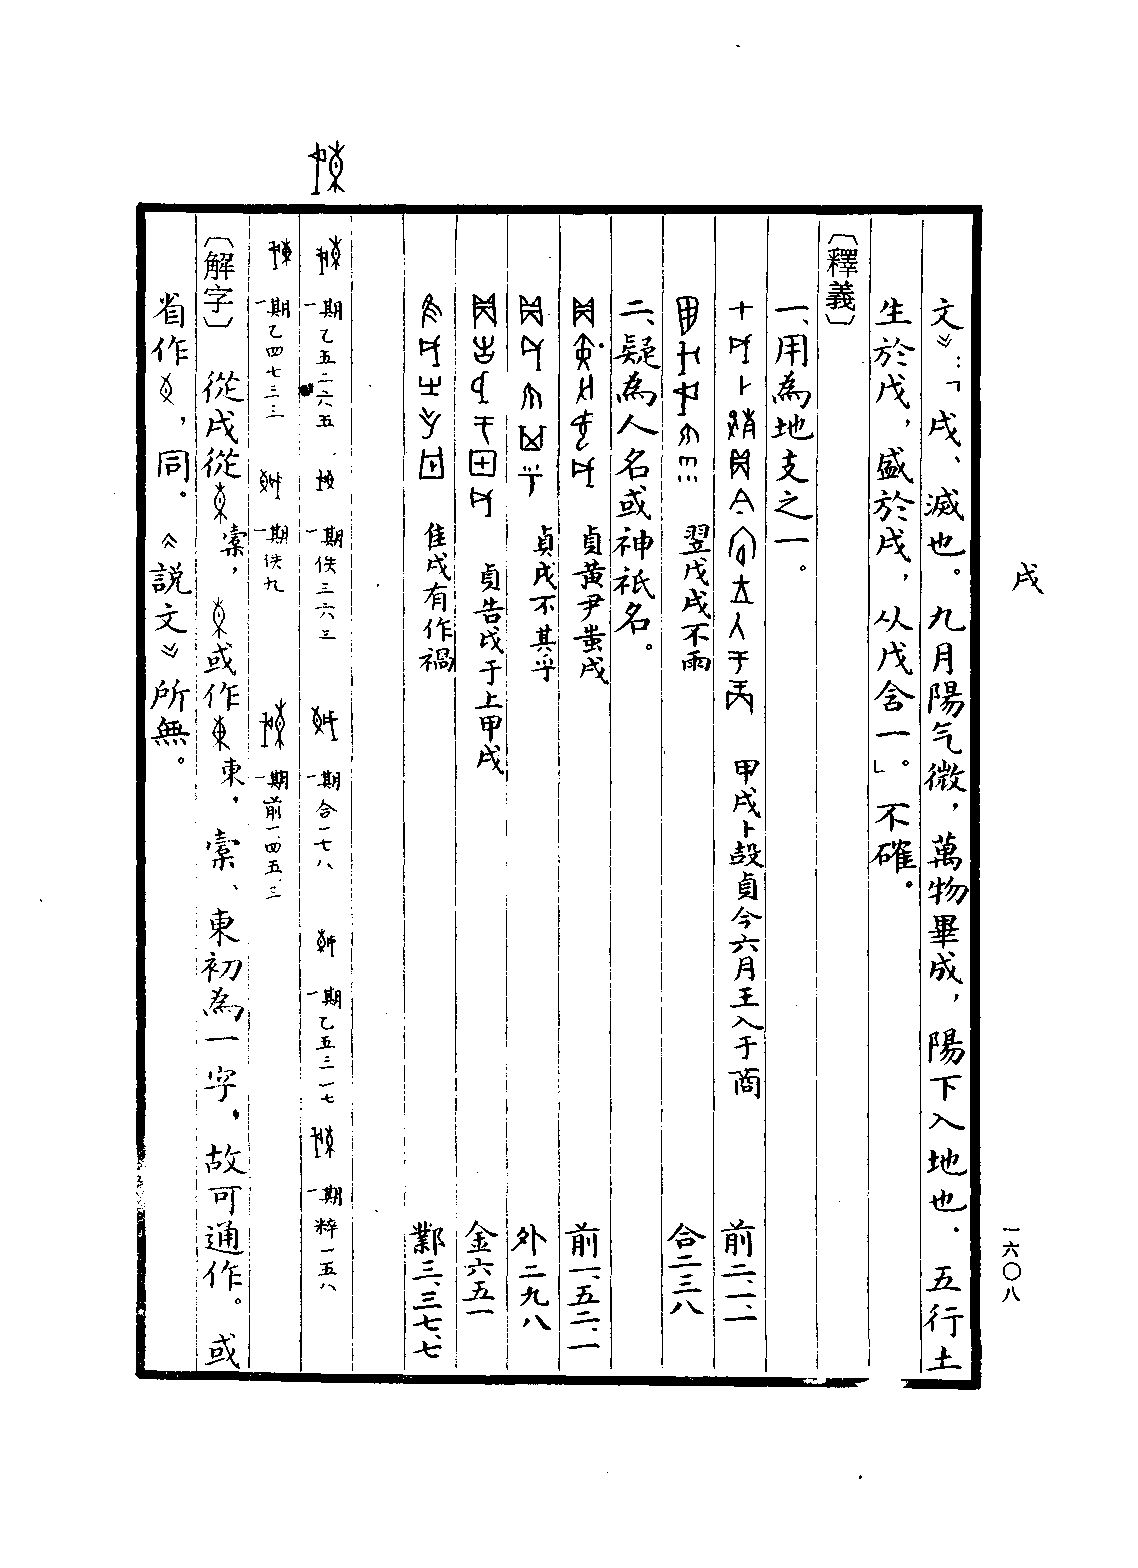 戌
一六〇八
文》：「戌、滅也。九月陽气微，萬物畢成，陽下入地也。五行土
生於戊，盛於戌，从戊含一」。不確。
〔釋義〕
一、用為地支之一。
甲戌卜㱿貞今六月王入于商 前二、一、一
翌戊戌不雨 合二三八
二、疑為人名或神祇名。
貞黃尹𧉘戌 前一、五二、一
貞戌不其乎 外二九八
貞告戌于上甲戌 金六五一
隹戌有作禍 鄴三、三七、七
一期乙五二六五 一期佚三六三 一期合一七八 一期乙五三一七 一期粹一五八
一期乙四七三三 一期佚九 一期前一、四五、三
〔解字〕 從戌從橐，或作東，橐、東初為一字，故可通作。或
省作，同。《說文》所無。